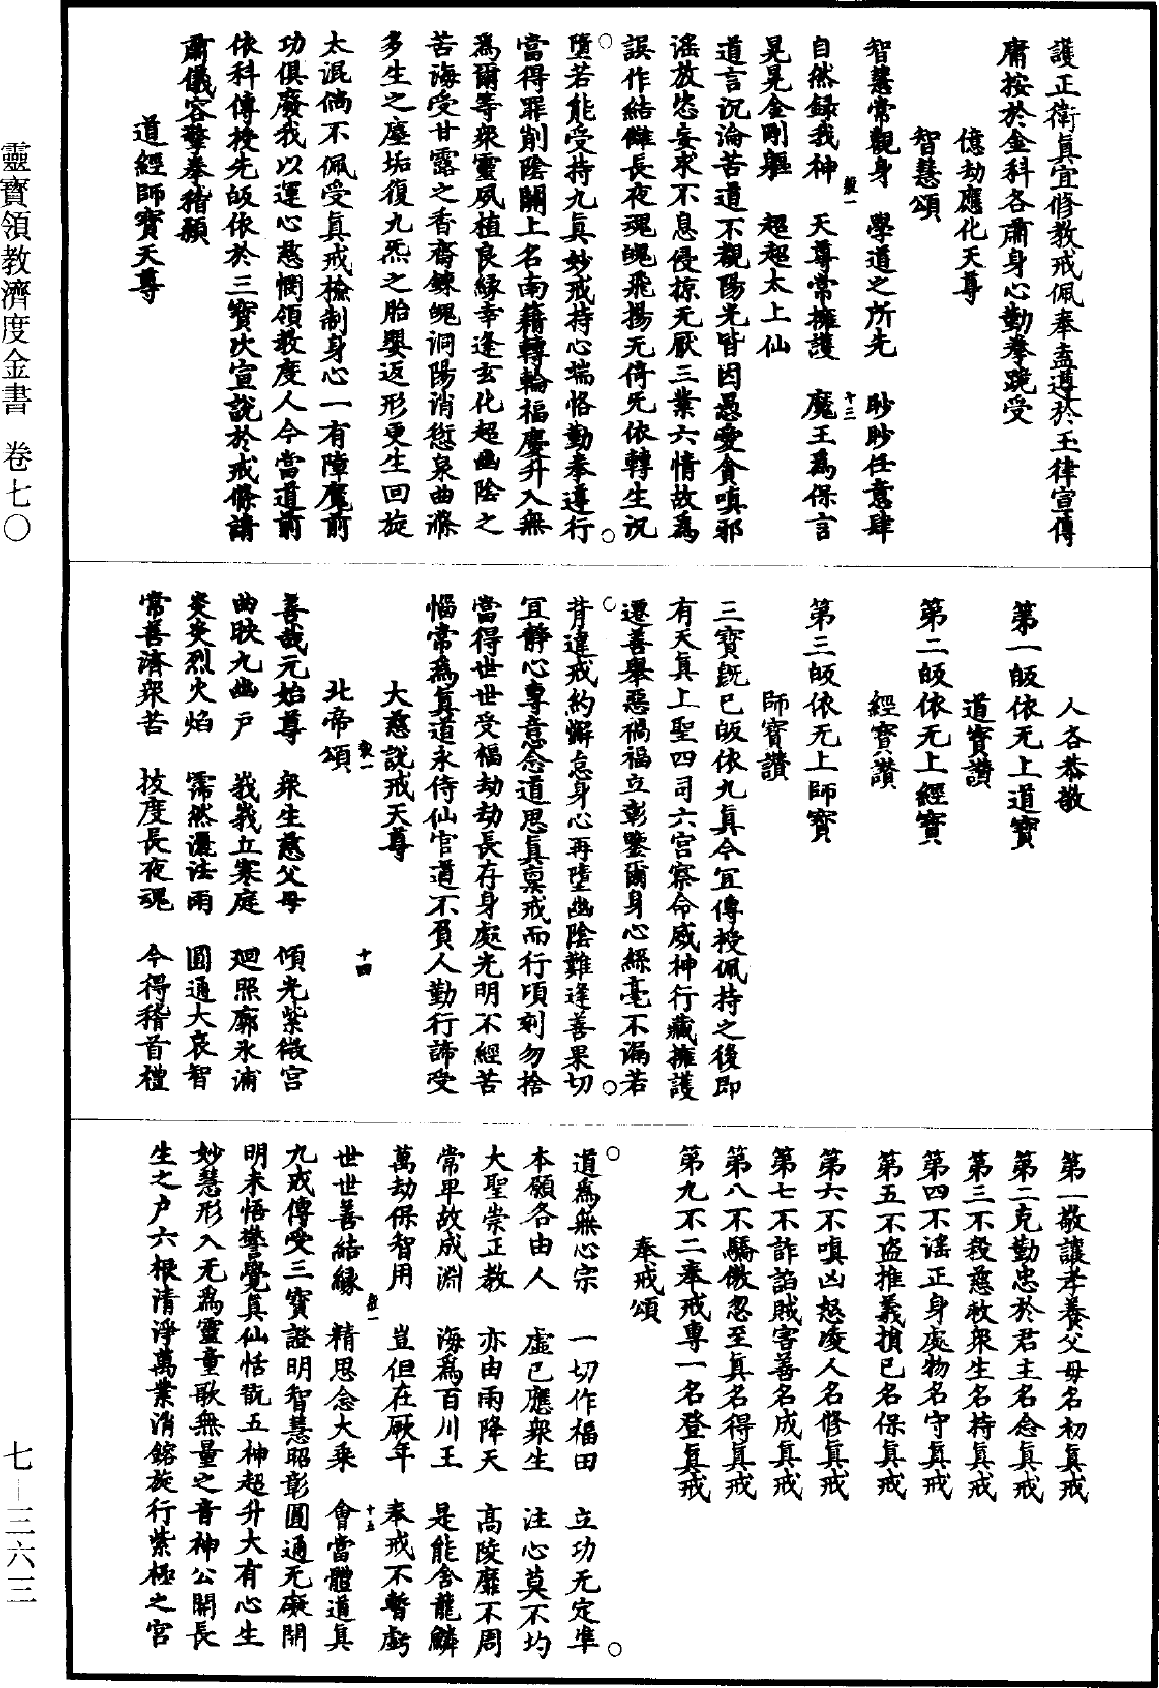 護正衛眞宜修教戒佩奉盍遵於玉律宣傳
庸按於金科各肅身心勤拳跪受
億劫應化天尊
智慧頌
智慧常觀身　學道之所先　眇眇任意肆
自然録我神　天尊常擁護　魔王爲保言
晃晃金剛軀　超超太上仙
道言沉淪苦道不覩陽光皆因愚愛貪嗔邪
淫放恣妄求不息侵掠无厭三業六情故爲
誤作結讎長夜魂魄飛揚无倚旡依轉生沉
墮若能受持九眞妙戒持心端恪勤奉遵行
當得罪削陰關上名南籍轉輪福慶升入無
爲爾等衆靈夙植良緣幸逢玄化超幽陰之
苦海受甘露之香齋鍊魄洞陽消愆泉曲滌
多生之塵垢復九炁之胎嬰返形更生回旋
太混倘不佩受眞戒檢制身心一有障魔前
功俱廢我以運心慈憫領教度人今當道前
依科傳授先皈依於三寶次宣說於戒條請
肅儀容擎拳稽顙
道經師寶天尊
人各恭敬
第一皈依无上道寶
道寶讚
第二皈依无上經寶
經寶讚
第三皈依无上師寶
師寶讚
三寶旣已皈依九眞今宜傳授佩持之後即
有天眞上聖四司六宮察命威神行藏擁護
遷善舉惡禍福立彰鑒爾身心綠毫不漏若
背違戒約懈怠身心再墮幽陰難逢善果切
宜靜心專意念道思眞稟戒而行頃刻勿捨
當得世世受福劫劫長存身處光明不經苦
惱常爲眞道永侍仙官道不負人勤行諦受
大慈說戒天尊
北帝頌
十四
善哉元始尊　衆生慈父母　傾光紫微宮
曲映九幽戶　峩峩立寒庭　廻照廓永浦
炎炎烈火焰　霈然灑法雨　圓通大哀智
常善濟衆苦　拔度長夜魂　今得稽首禮
第一敬讓孝養父母名初眞戒
第二克勤忠於君主名念眞戒
第三不殺慈救衆生名持眞戒
第四不淫正身處物名守眞戒
第五不盗推義損已名保眞戒
第六不嗔凶怒凌人名修眞戒
第七不詐諂賊害善名成眞戒
第八不驕傲忽至眞名得眞戒
第九不二奉戒專一名登眞戒
奉戒頌
道爲無心宗　一切作福田　立功无定準
本願各由人　虛已應衆生　注心莫不均
大聖崇正教　亦由雨降天　高陵靡不周
常早故成淵　海爲百川王　是能舍龍鱗
萬劫保智用　豈但在厥年　奉戒不暫虧
世世善結緣　精思念大乘　會當體道眞
九戒傳受三寶證明智慧昭彰圓通无礙開
明未悟讐覺眞仙恬翫五神超升大有心生
妙慧形入无爲靈童歌無量之音神公開長
生之戶六根清淨萬業消鎔旋行紫極之宮
靈寶領教濟度金書　卷七〇
七—三六三